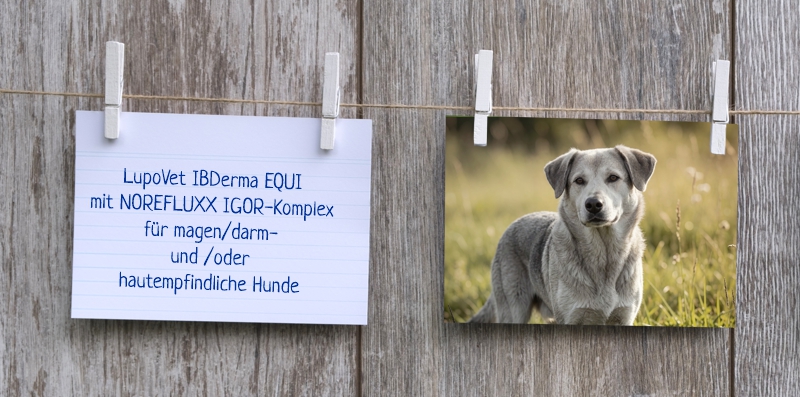 LupoVet IBDerma EQUI
mit NOREFLUXX IGOR-Komplex
für magen/darm-
und /oder
hautempfindliche Hunde